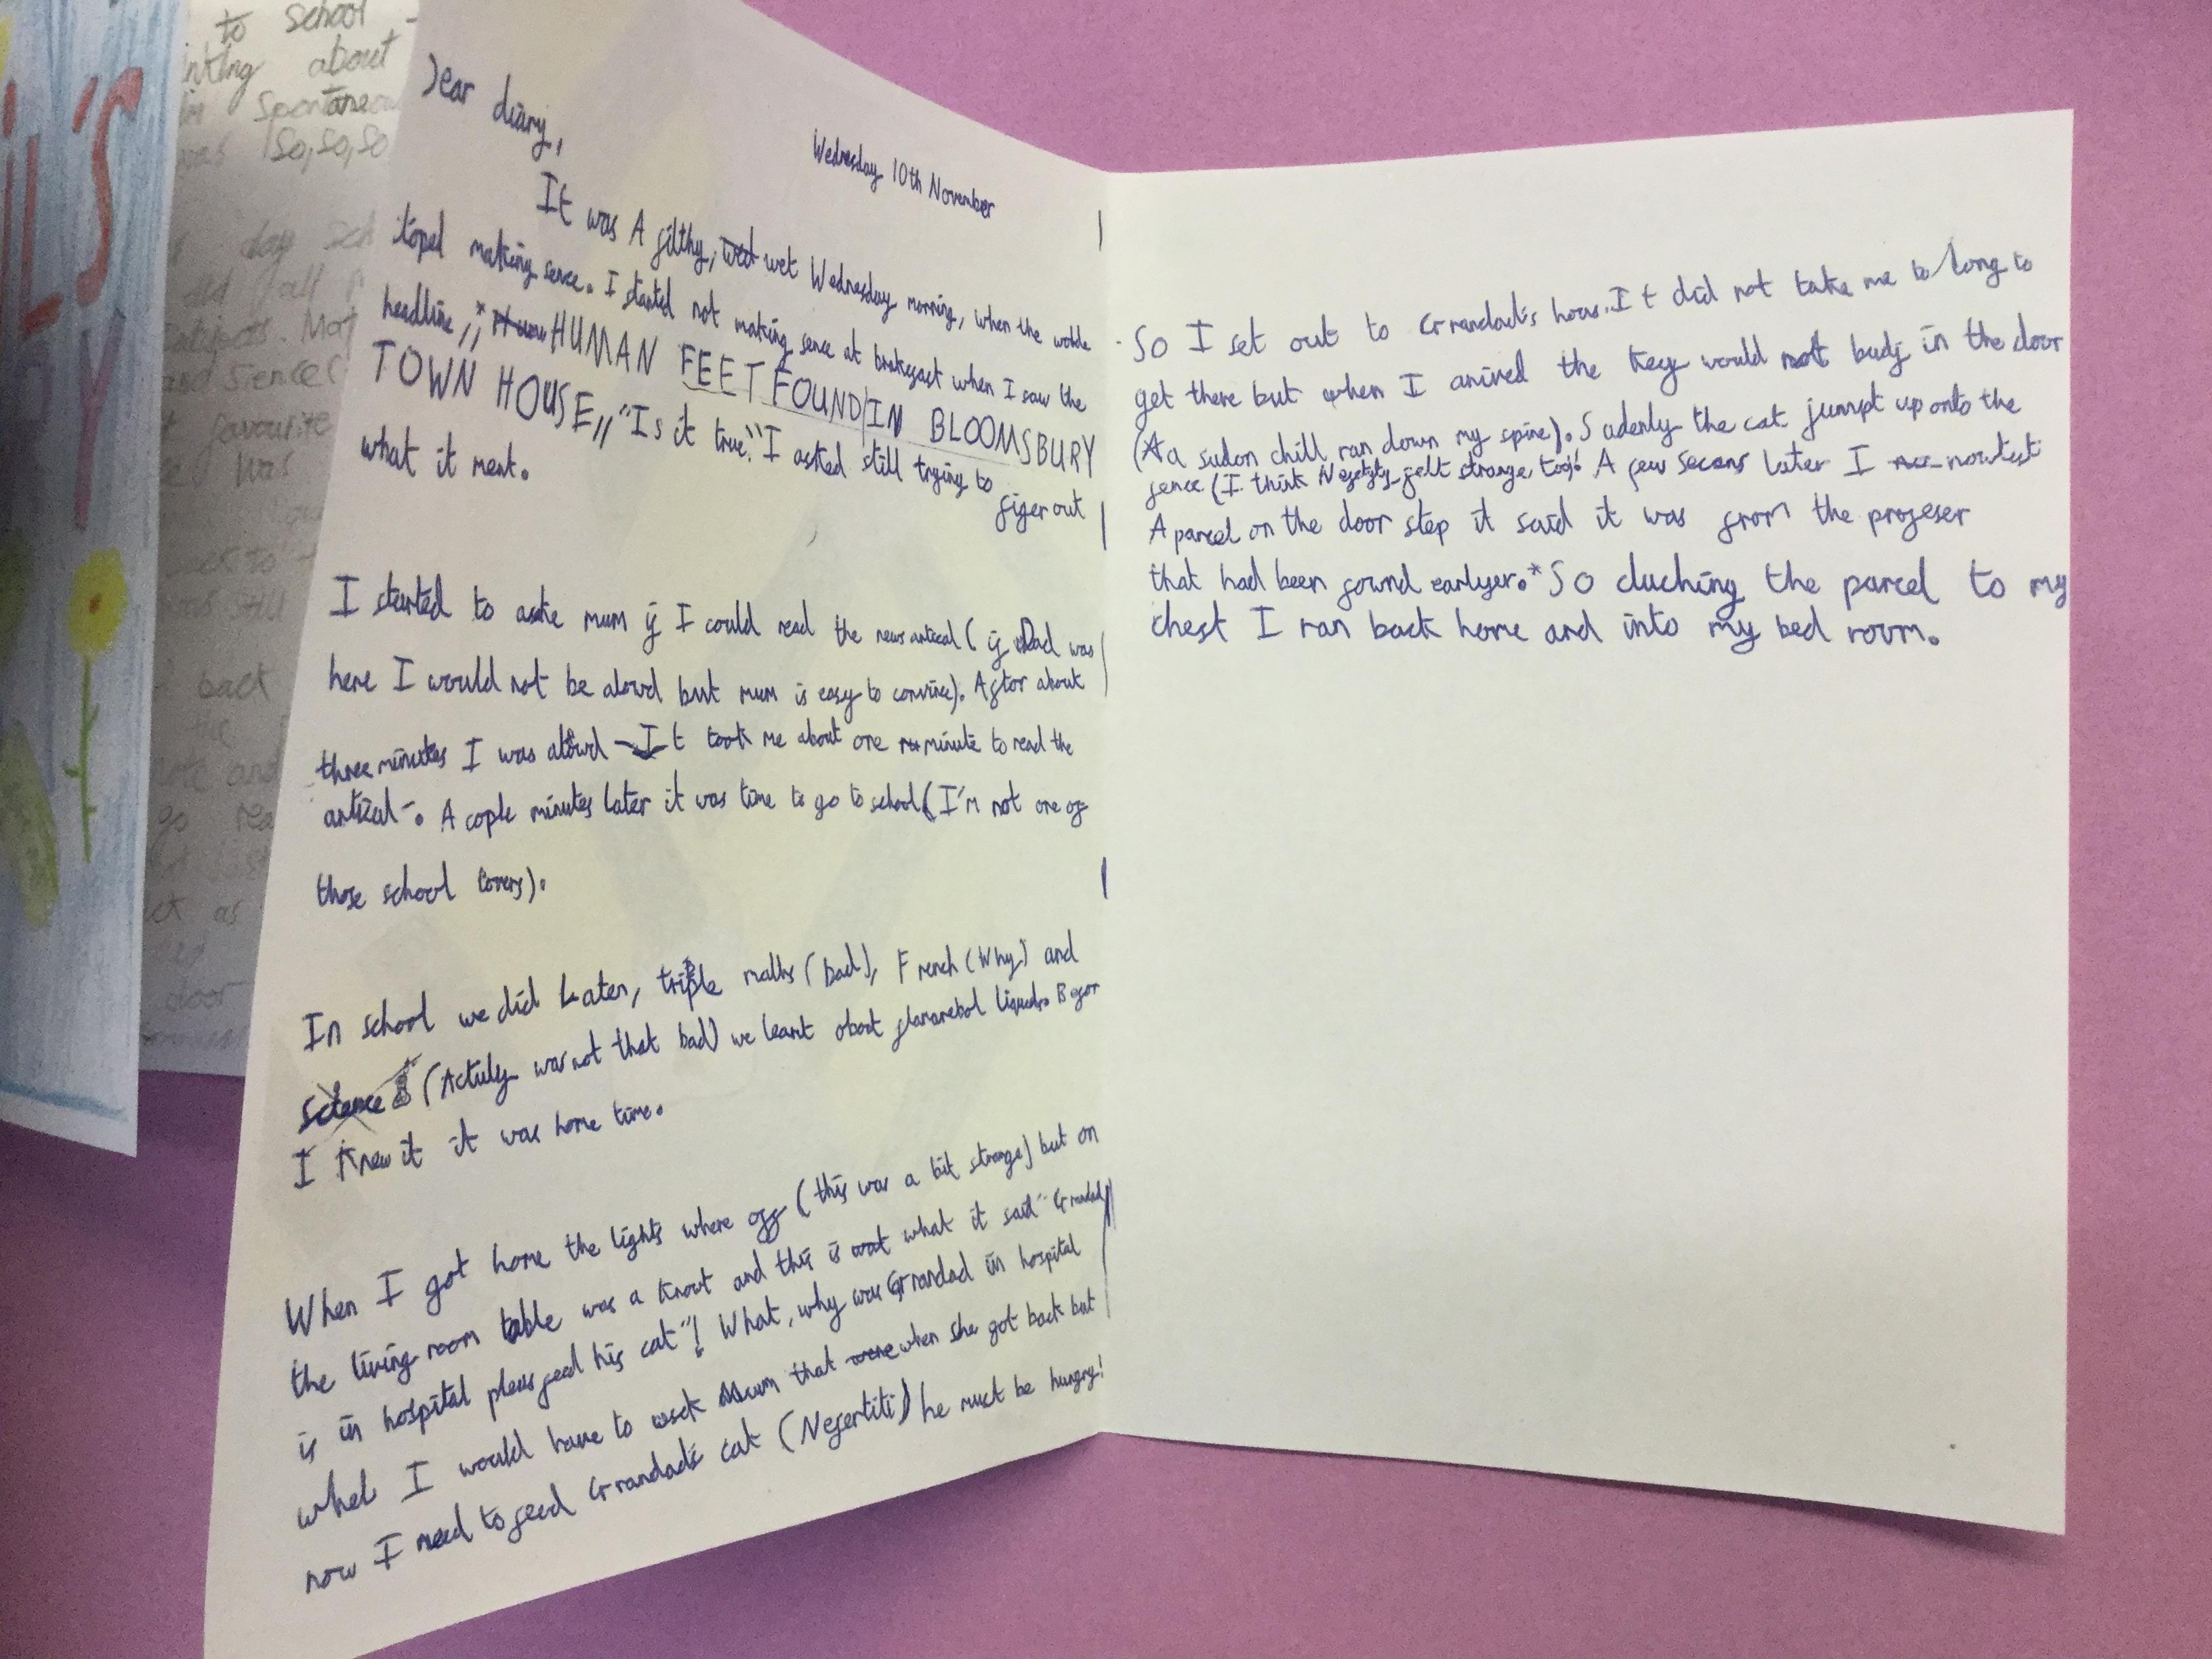 to school
about
So, so, so
day
all
favourite
was
back
the
door
Dear diary,
Wednesday 10th November
It was A filthy, wet Wednesday morning, when the
stoped making sence. I started not making sence at brakefast when I saw the
headline,, HUMAN FEET FOUND IN BLOOMSBURY
TOWN HOUSE,, "Is it true" I asked still trying to
figer out
what it ment.
I started to aske mum if I could read the news artical (if Dad was
here I would not be aloud but mum is easy to convince). After about
three minutes I was alowd - It took me about one minute to read the
artical -. A cople minutes later it was time to go to school (I'm not one of
those school lovers).
In school we did Laten, triple maths (bad), French (Why) and
science (Actuly was not that bad) we learnt obout liquids. Befor
I Knew it it was home time.
When I got home the lights where off (this was a bit strange) but on
the living room table was a Knout and this is what it said "Grandad
is in hospital pleas feed his cat"! What, why was Grandad in hospital
I would have to Mum that when she got back but
now I need to feed Grandad's cat (Nefertiti) he must be hungry!
So I set out to Grandad's hous. It did not take me to long to
get there but when I arived the Key would not budj in the door
(A a sudon chill ran down my spine). Sudenly the cat jumpt up onto the
fence (I think felt strange too)! A few secons later I
A parcel on the door step it said it was from the profeser
that had been fownd earlyer.* So cluching the parcel to my
chest I ran back home and into my bed room.